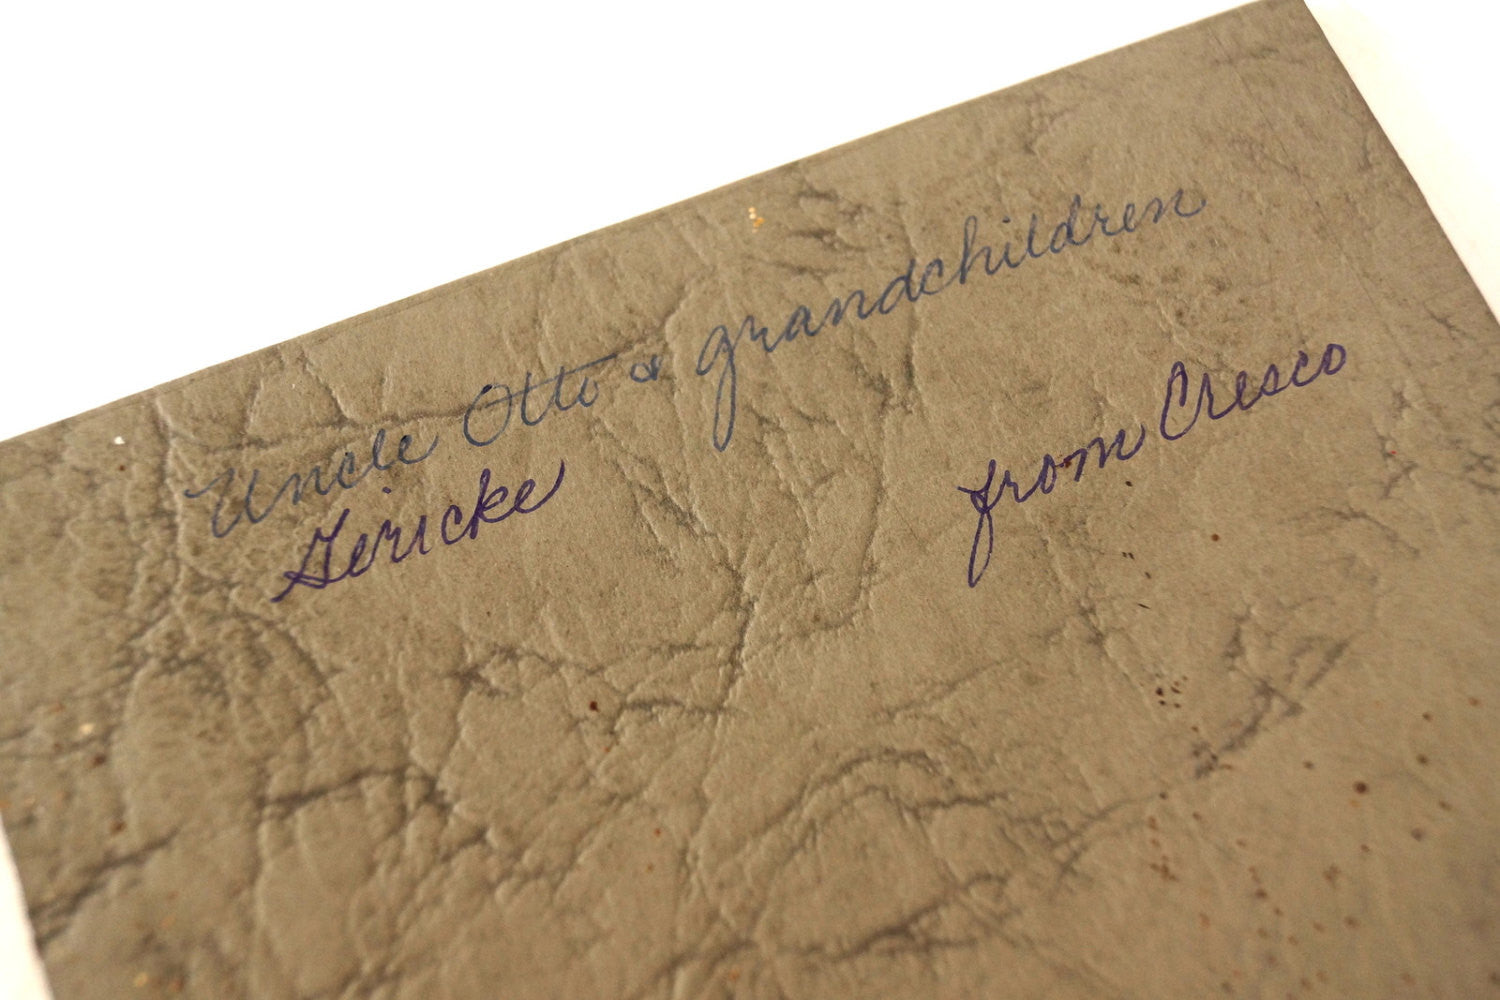 Uncle Otto & grandchildren
Gericke from Cresco